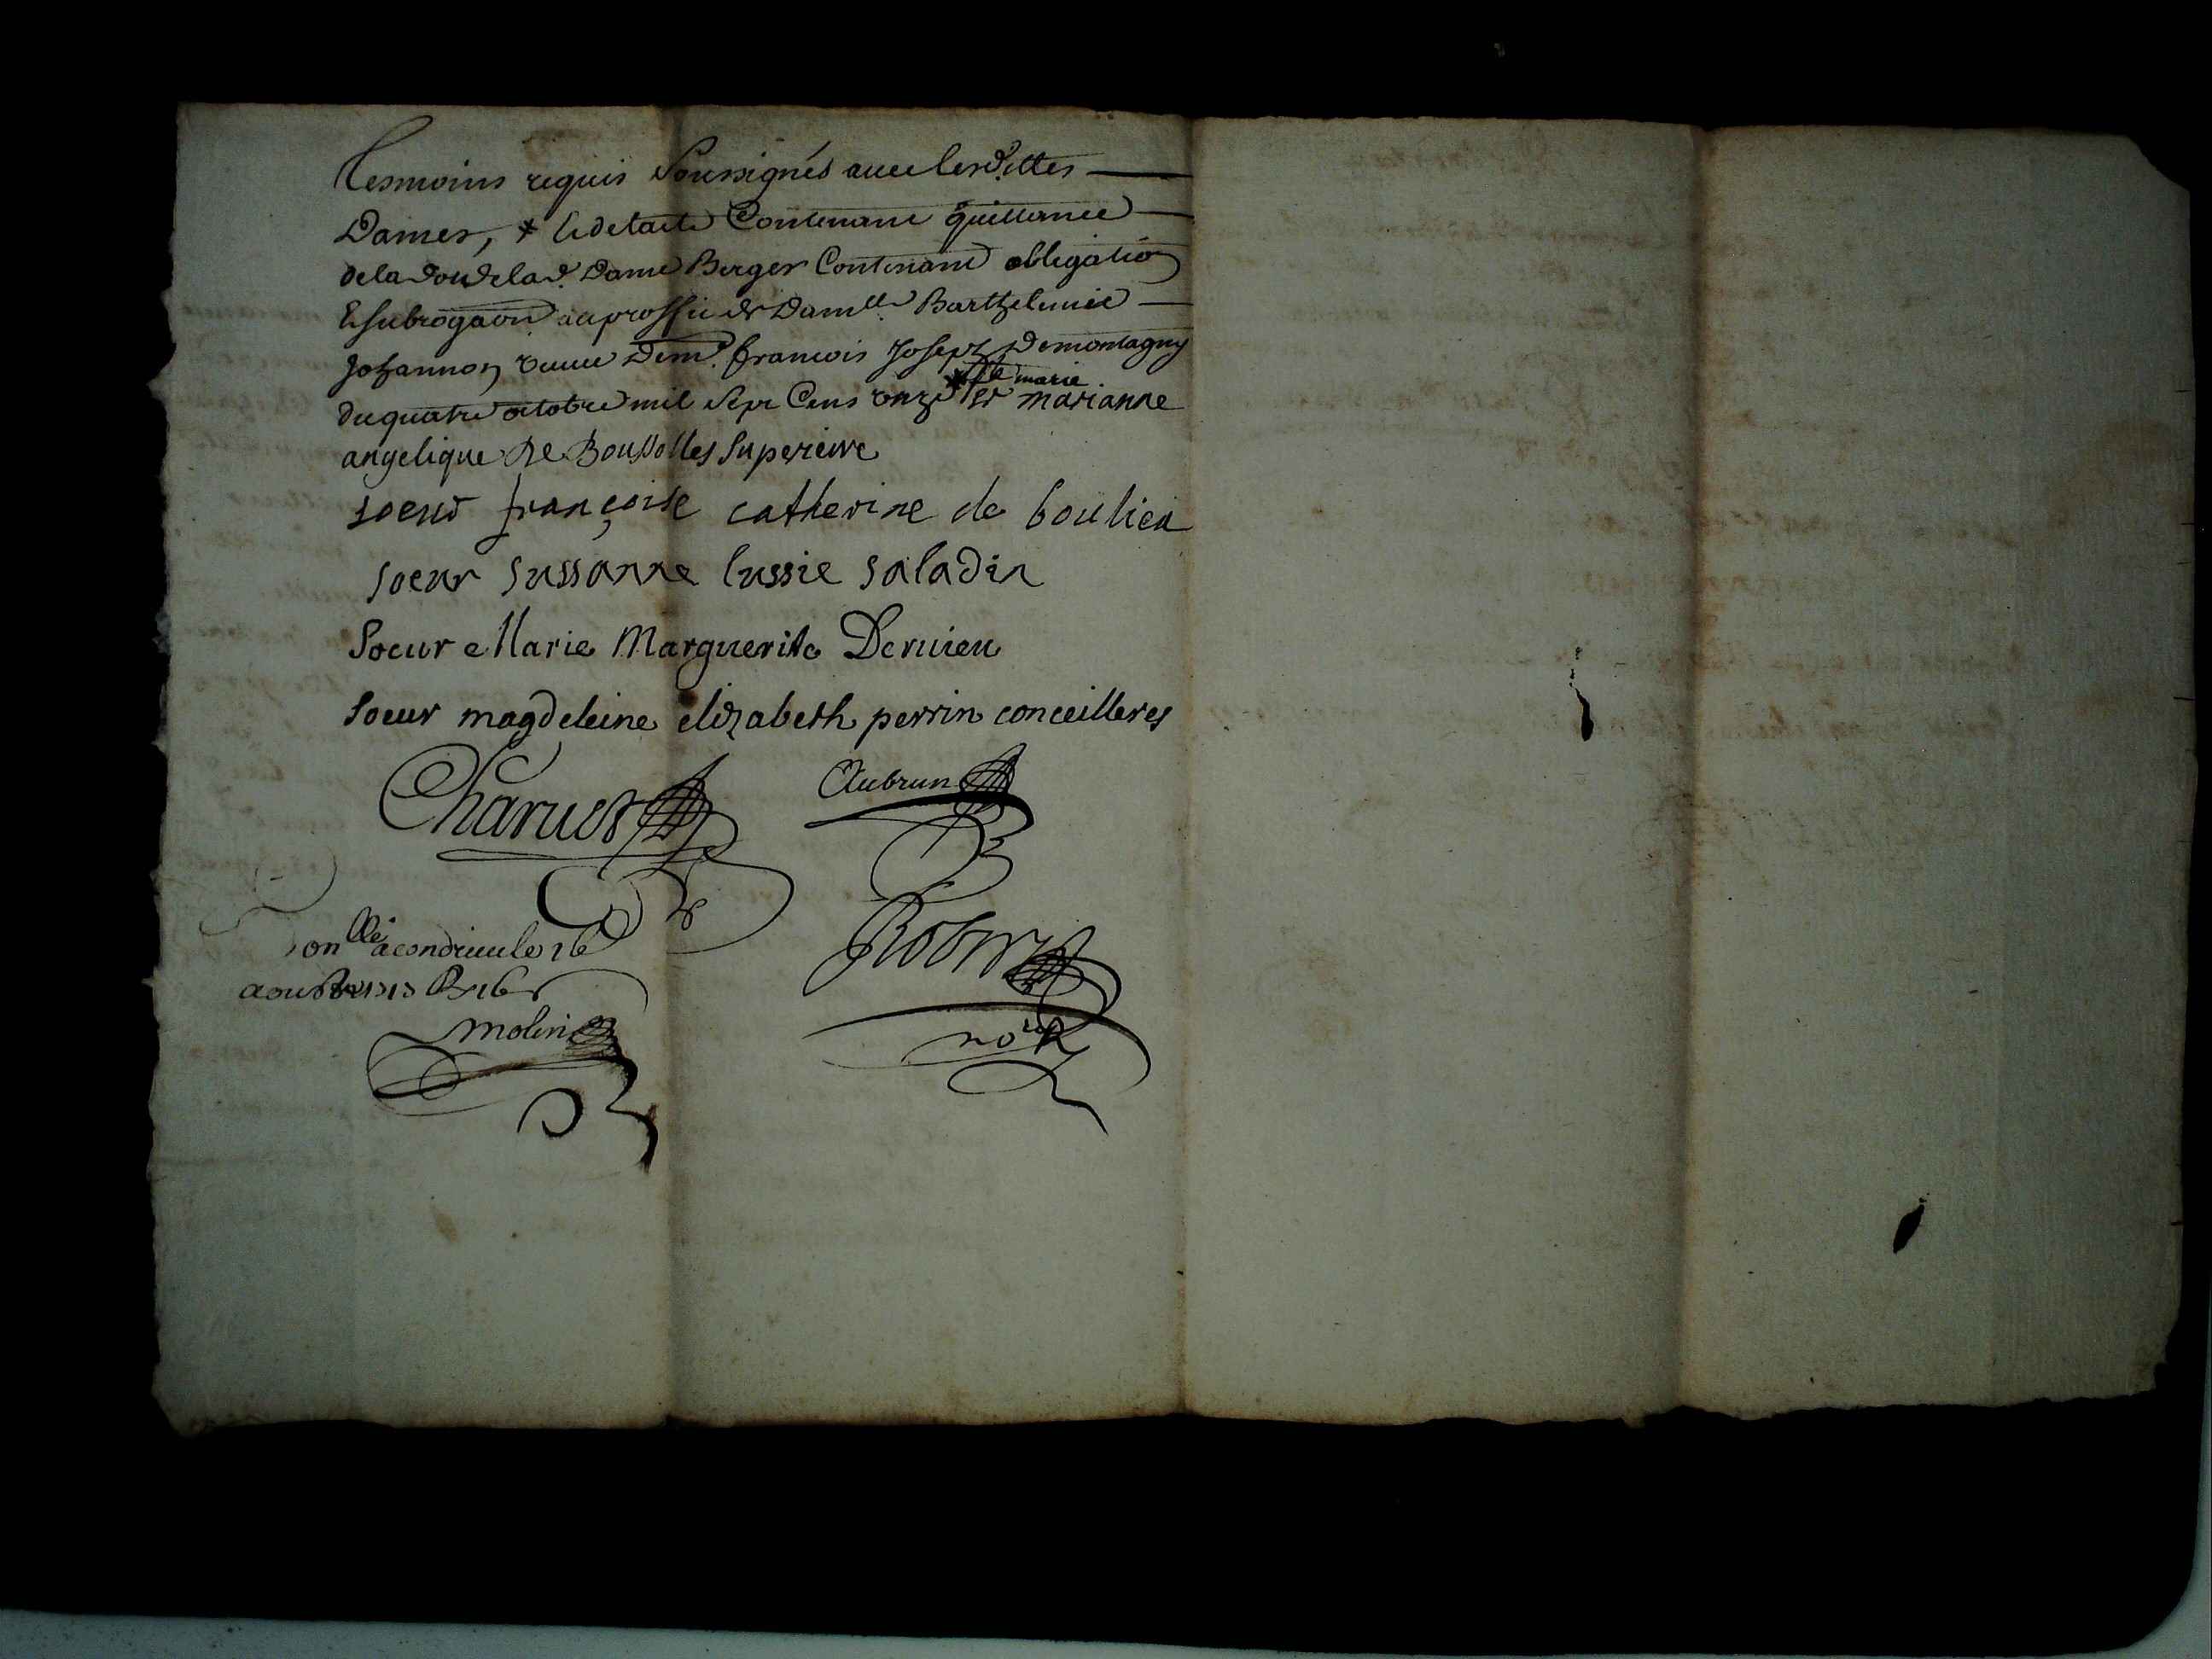 tesmoins requis soussignés avec lesd.ittes
Dames, * ledetacte Contenant quittance
dela dou dela d. Dame Berger Contenant obligatiõ
Esubrogaon au proffit de Dam.lle Barthelemie
Johannon veuve Dem.r francois Joseph Demontagny
du quatre octobre mil sept Cens onze * marie
sr marianne
angelique De Boussolles superieure
soeur françoise catherine de boulieu
soeur sussanne lussie saladin
Soeur Marie Marguerite Deruieu
soeur magdeleine elizabeth perrin conceilleres
Charuet
Aubrun
Con.llé a condrieu le 16
aoust
Robert
molin
no.re